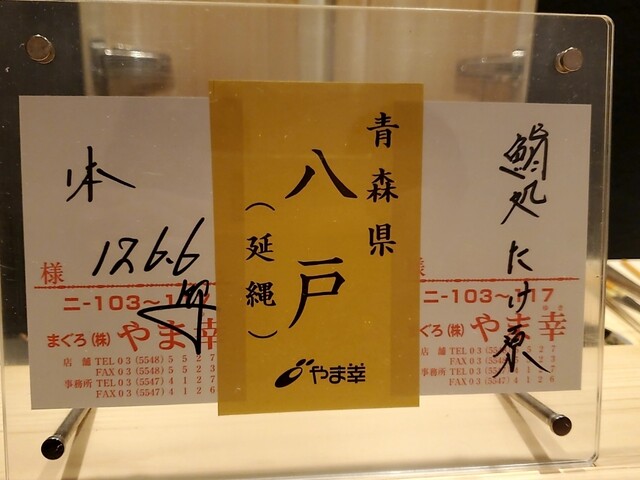 本
126.6
様
ニー103~1 7
まぐろ(株)やま幸
店舗 TEL 03 (5548) 5 5 2 7
FAX 03 (5548) 5 5 2
事務所 TEL 03 (5547) 4 1 2
FAX 03 (5547) 4 1 2 6
青森県
八戸
(延縄)
やま幸
鮨処 たけ原
様
ニー103~117
まぐろ(株)やま幸
TEL 03 (5548)
FAX 03 (5548)
事務所 TEL 03 (5547) 4 1 2
FAX 03 (5547) 4 1 2 6